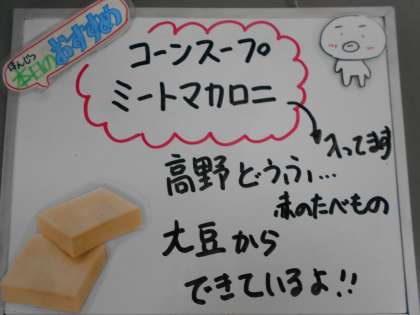 ほんじつ
本日のおすすめ
コーンスープ
ミートマカロニ
入ってます
高野どうふ…
赤のたべもの
大豆から
できているよ!!